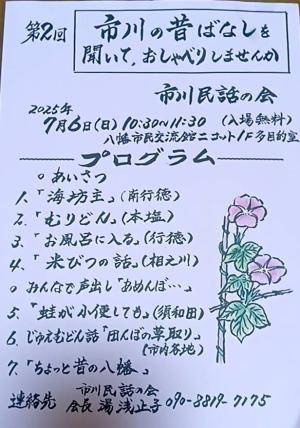 第2回
市川の昔ばなしを
聞いて、おしゃべりしませんか
市川民話の会
2025年
7月6日(日) 10:30~11:30 (入場無料)
八幡市民交流館ニコット1F多目的室
プログラム
○ あいさつ
1.「海坊主」(南行徳)
2.「むりどん」(本塩)
3.「お風呂に入る」(行徳)
4.「米びつの話」(相之川)
○ みんなで声出し「あめんぼ…」
5.「蛙が小便しても」(須和田)
6. じゅえむどん話「田んぼの草取り」
(市内各地)
7.「ちょっと昔の八幡」
市川民話の会
連絡先 会長 湯浅止子 090-8819-7175